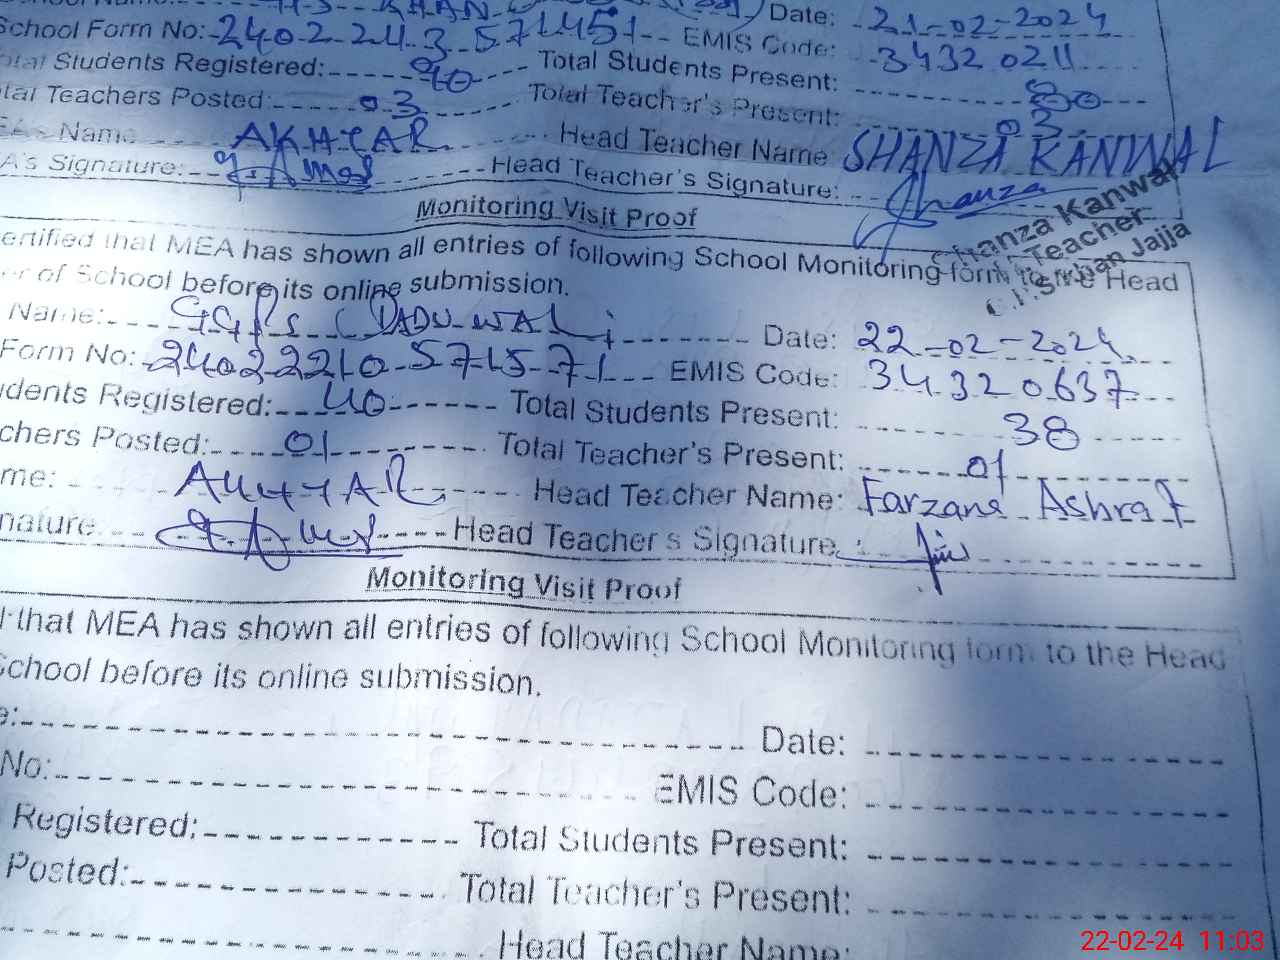 KHAN Date: 21-02-2024
School Form No: 2402 2 2 4 3 571451 EMIS Code: 34320211
Total Students Registered: 90 Total Students Present: 80
tal Teachers Posted: 03 Total Teacher's Present: 03
EA's Name AKHTAR Head Teacher Name SHANZA KANWAL
A's Signature: Head Teacher's Signature: Shanza
Shanza Kanwal
Teacher
Jajja
Monitoring Visit Proof
ertified that MEA has shown all entries of following School Monitoring form to the Head
er of School before its online submission.
Name: GGPS DADU WALI Date: 22-02-2024
Form No: 24022210571571 EMIS Code: 34320637
udents Registered: 40 Total Students Present: 38
chers Posted: 01 Total Teacher's Present: 01
me: AKHTAR Head Teacher Name: Farzana Ashraf
nature: Head Teacher's Signature:
Monitoring Visit Proof
that MEA has shown all entries of following School Monitoring form to the Head
School before its online submission.
e: Date:
No: EMIS Code:
Registered: Total Students Present:
Posted: Total Teacher's Present:
Head Teacher Name:
22-02-24 11:03